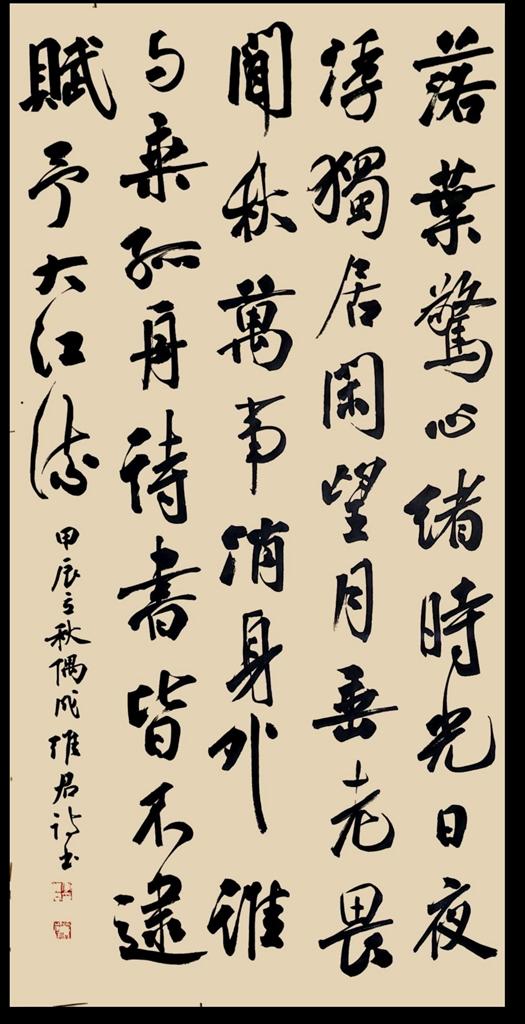 落葉驚心緒時光日夜
浮獨居閑望月垂老畏
聞秋萬事消身外誰
与乘孤舟詩書皆不逮
賦予大江流
甲辰立秋偶成維君诗书